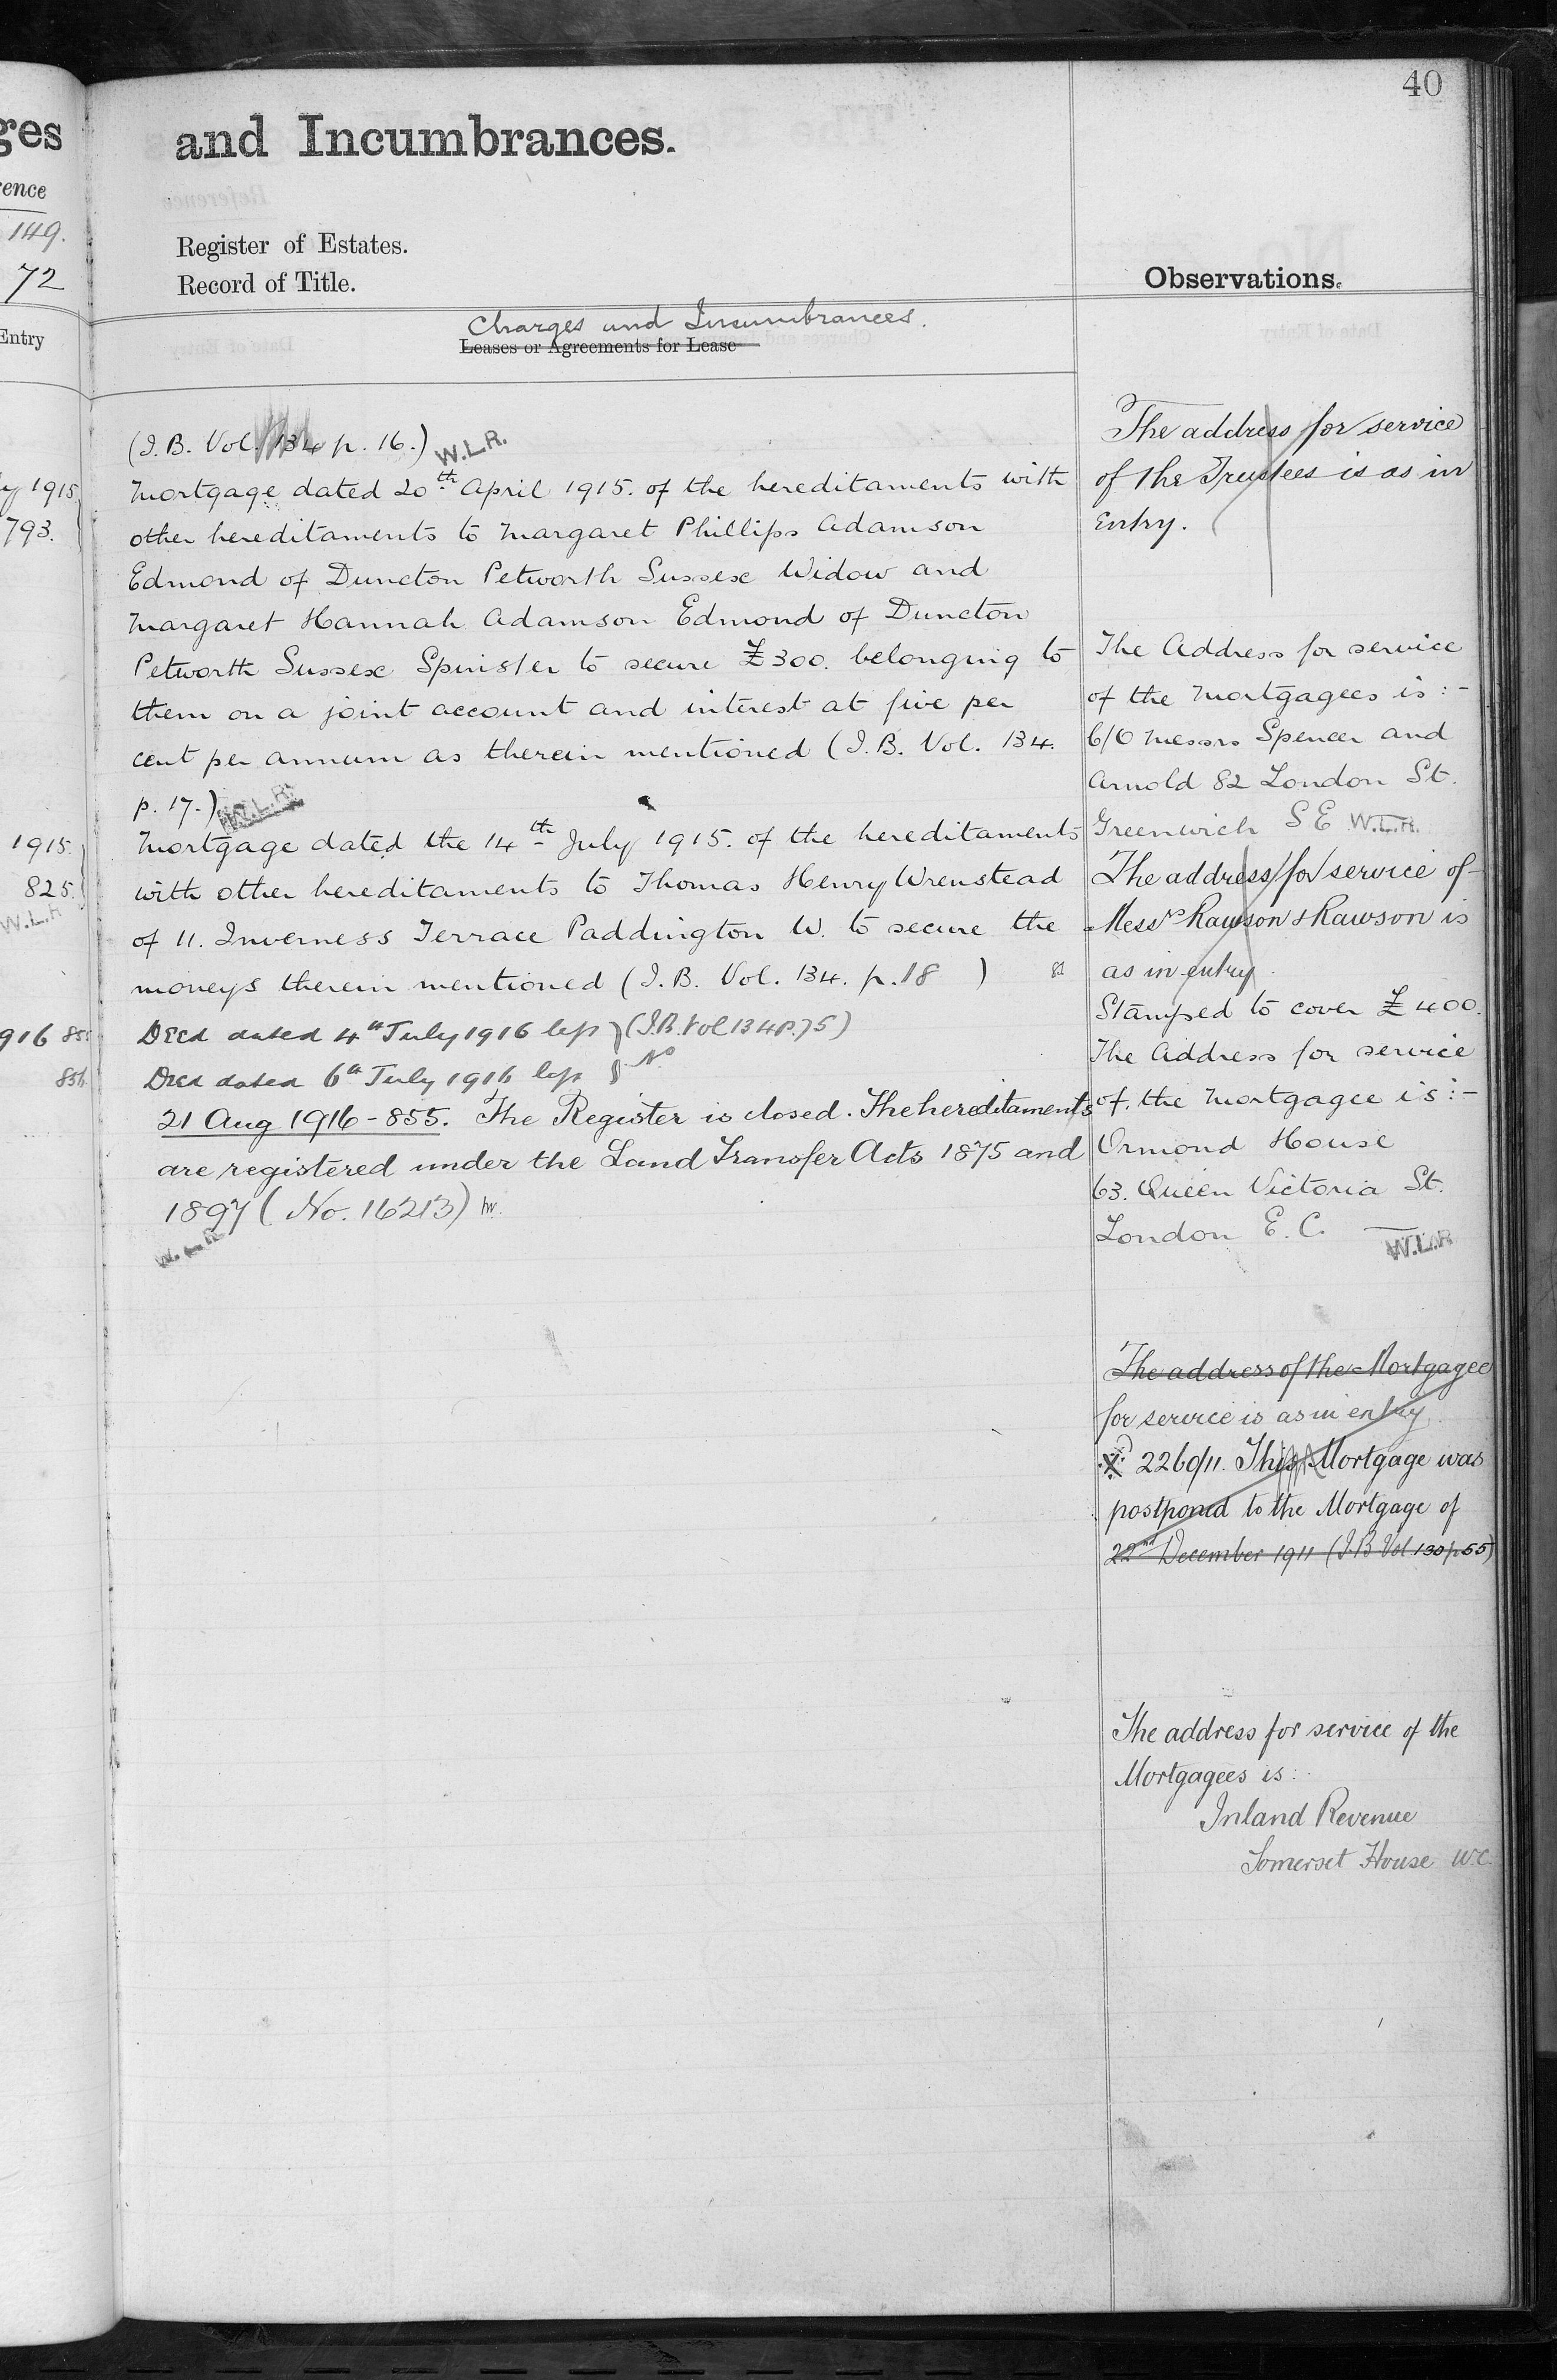 40
ges
and Incumbrances.
ence
149.
Register of Estates.
72
Record of Title.
Observations.
Entry
Charges and Incumbrances.
Leases or Agreements for Lease
(I.B. Vol. 134 p. 16.) W.L.R.
1915
Mortgage dated 20th April 1915. of the hereditaments with
793.
other hereditaments to Margaret Phillips Adamson
Edmond of Duncton Petworth Sussex Widow and
Margaret Hannah Adamson Edmond of Duncton
Petworth Sussex Spinster to secure £300. belonging to
them on a joint account and interest at five per
cent per annum as therein mentioned (I.B. Vol. 134.
p. 17.) W.L.R.
1915.
Mortgage dated the 14th July 1915. of the hereditaments
825.
with other hereditaments to Thomas Henry Wrenstead
W.L.R
of 11. Inverness Terrace Paddington W. to secure the
moneys therein mentioned (I.B. Vol. 134. p. 18 )
916 855
Deed dated 4th July 1916 (I.B. Vol 134 P. 75)
856
Deed dated 6th July 1916 No
21 Aug 1916 - 855. The Register is closed. The hereditaments
are registered under the Land Transfer Acts 1875 and
1897 (No. 16213) hv.
W.L.R
The address for service
of the Trustees is as in
Entry.
The Address for service
of the Mortgagees is :-
C/O Messrs Spencer and
Arnold 82 London St.
Greenwich S E W.L.R.
The address for service of
Messrs Rawson & Rawson is
as in entry.
Stamped to cover £400.
The Address for service
of the Mortgagee is :-
Ormond House
63. Queen Victoria St.
London E. C.
W.L.R
The address of the Mortgagee
for service is as in entry
2260/11. This Mortgage was
postponed to the Mortgage of
22nd December 1911 (I.B Vol. 130 p 55)
The address for service of the
Mortgagees is:
Inland Revenue
Somerset House W.C.